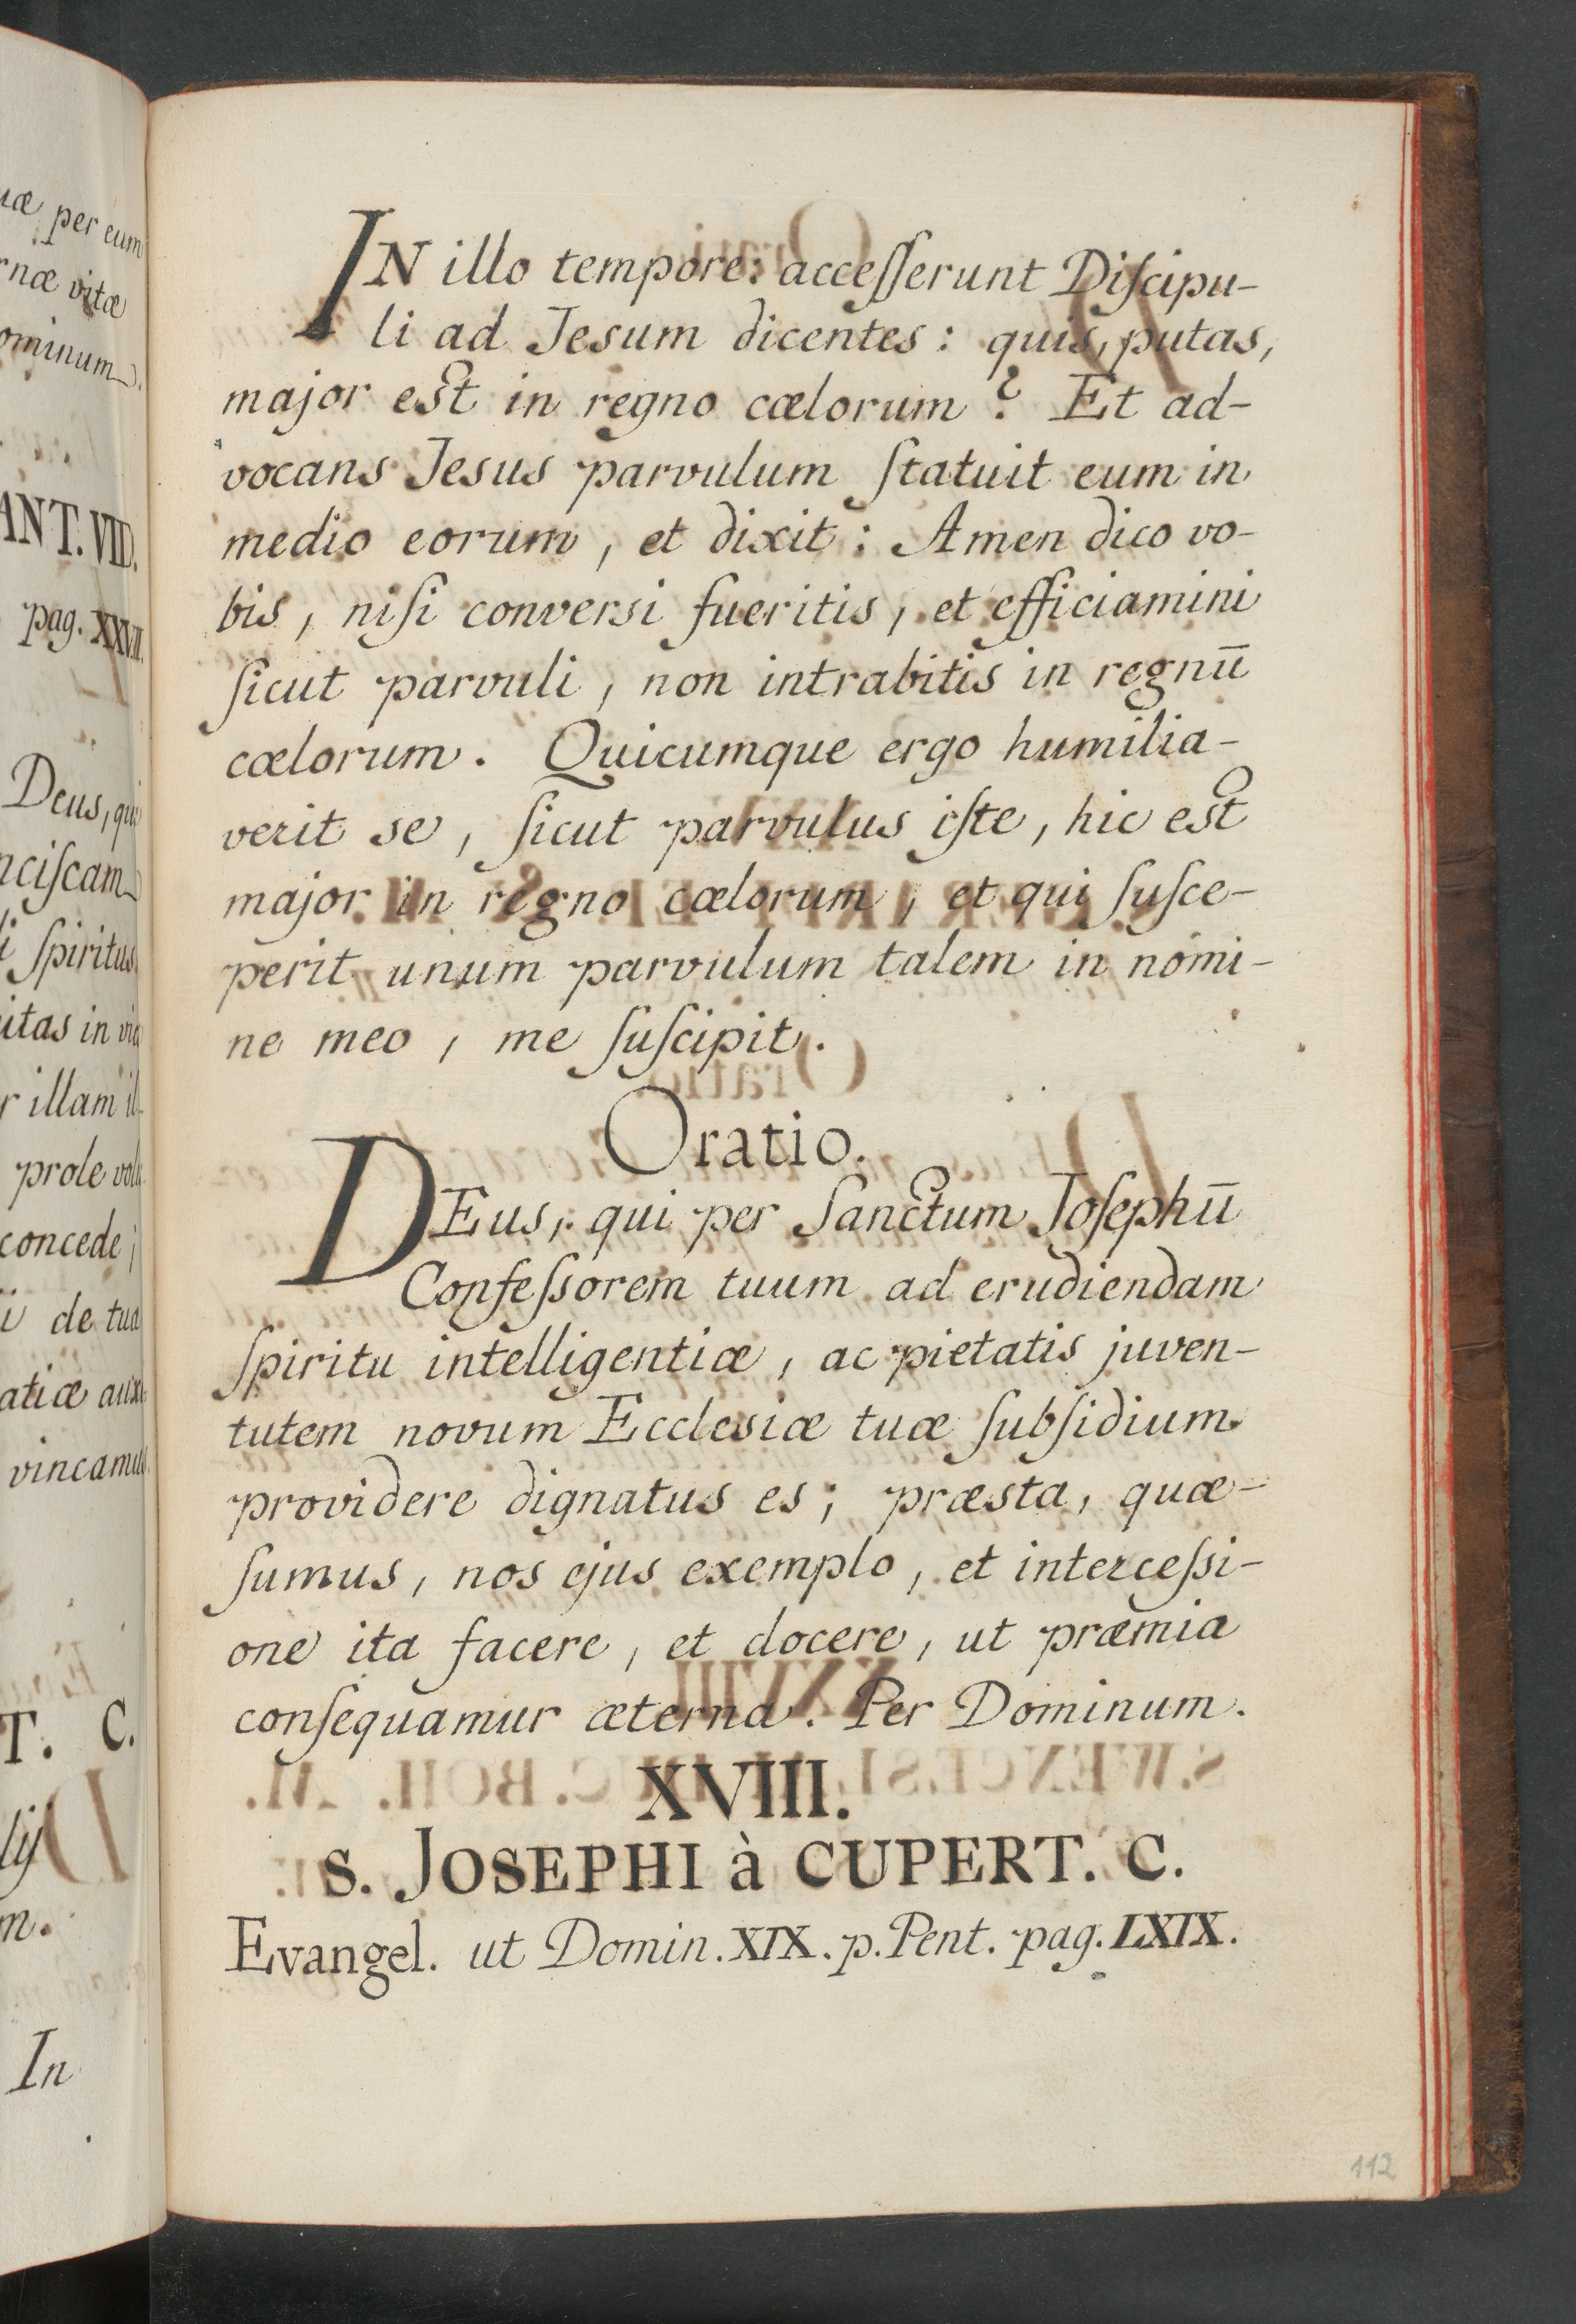 uæ per eum
næ vitæ
ominum.
ANT. VID.
pag. XXVII.
Deus, qui
nciſcam
i ſpiritus
itas in via
r illam il-
prole
concede;
de tua
atiæ
vincamus
T. C.
In
IN illo tempore: acceſſerunt Diſcipu-
li ad Jesum dicentes: quis, putas,
major est in regno cælorum? Et ad-
vocans Jesus parvulum ſtatuit eum in
medio eorum, et dixit: Amen dico vo-
bis, niſi conversi fueritis, et efficiamini
ſicut parvuli, non intrabitis in regnū
cælorum. Quicumque ergo humilia-
verit se, ſicut parvulus iſte, hic est
major in regno cælorum, et qui ſuſce-
perit unum parvulum talem in nomi-
ne meo, me ſuſcipit.
Oratio.
DEus, qui per Sanctum Joſephū
Confeſsorem tuum ad erudiendam
ſpiritu intelligentiæ, ac pietatis juven-
tutem novum Ecclesiæ tuæ ſubſidium
providere dignatus es; præsta, quæ-
ſumus, nos ejus exemplo, et interceſsi-
one ita facere, et docere, ut præmia
conſequamur æterna. Per Dominum.
XVIII.
S. JOSEPHI à CUPERT. C.
Evangel. ut Domin. XIX. p. Pent. pag. LXIX.
112